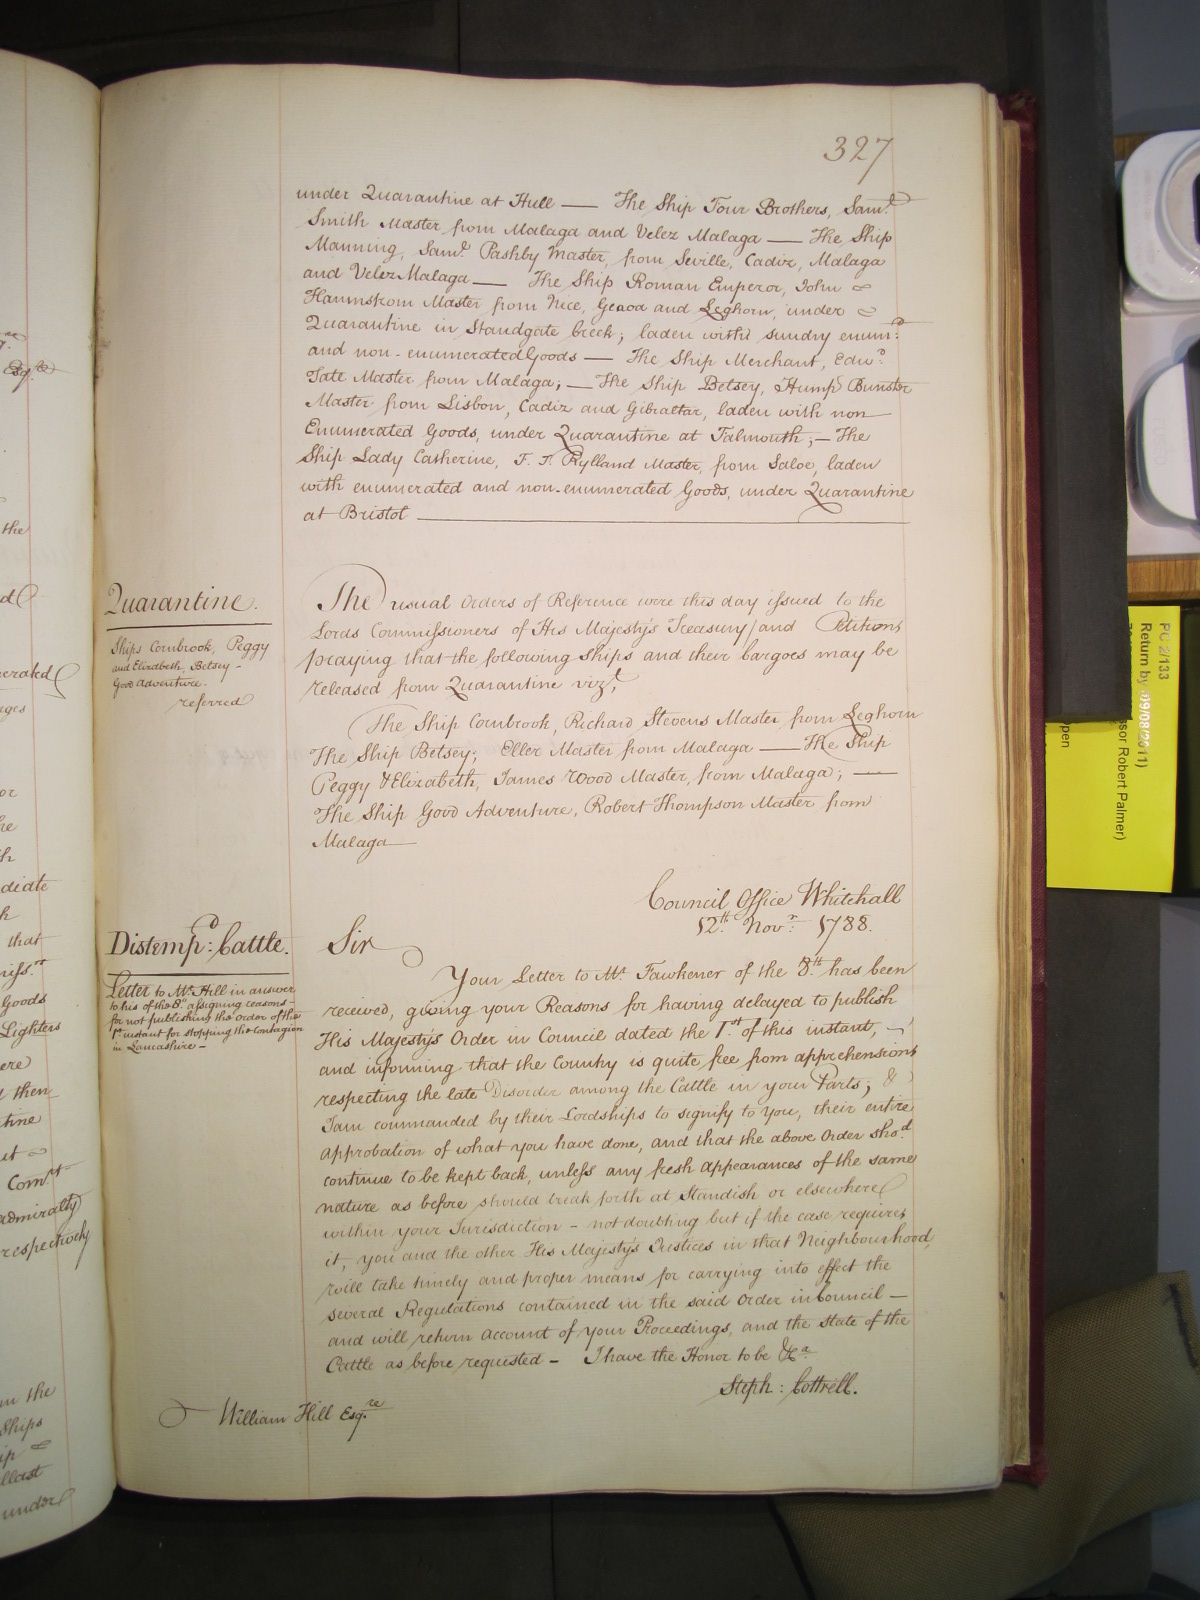 327
under Quarantine at Hull — The Ship Four Brothers, Saml.
Smith Master from Malaga and Velez Malaga — The Ship
Manning, Saml. Pashby Master, from Seville, Cadiz, Malaga
and Velez Malaga — The Ship Roman Emperor, John
Master from Nice, Genoa and Leghorn, under
Quarantine in Standgate Creek; laden with sundry enumd.
and non-enumerated Goods — The Ship Merchant, Edwd.
Tate Master from Malaga; — The Ship Betsey, Hump Bunster
Master from Lisbon, Cadiz and Gibraltar, laden with non
Enumerated Goods, under Quarantine at Falmouth; — The
Ship Lady Catherine, F. T. Rylland Master, from Saloe, laden
with enumerated and non-enumerated Goods, under Quarantine
at Bristol
Quarantine.
Ships Cornbrook, Peggy
and Elizabeth, Betsey –
Good Adventure.
referred
The usual Orders of Reference were this day issued to the
Lords Commissioners of His Majesty's Treasury/and Petitions
praying that the following Ships and their Cargoes may be
released from Quarantine vizt.
The Ship Cornbrook, Richard Stevens Master from Leghorn
The Ship Betsey; Eller Master from Malaga — The Ship
Peggy & Elizabeth, James Wood Master, from Malaga; —
The Ship Good Adventure, Robert Thompson Master from
Malaga —
Council Office Whitehall
12th. Novr. 1788.
Distempd: Cattle.
Letter to Mr. Hill in answer
to his of the 8th. assigning reasons –
for not publishing the Order of the
1st instant for stopping the Contagion
in Lancashire –
Sir
Your Letter to Mr. Fawkener of the 8th. has been
received, giving your Reasons for having delayed to publish
His Majesty's Order in Council dated the 1st. of this instant, —
and informing that the Country is quite free from apprehensions
respecting the late Disorder among the Cattle in your Parts; &
I am commanded by their Lordships to signify to you, their entire
approbation of what you have done, and that the above Order shod.
continue to be kept back, unless any fresh appearances of the same
nature as before should break forth at Standish or elsewhere
within your Jurisdiction – not doubting but if the case requires
it, you and the other His Majesty's Justices in that Neighbourhood,
will take timely and proper means for carrying into effect the
several Regulations contained in the said Order in Council —
and will return Account of your Proceedings, and the State of the
Cattle as before requested – I have the Honor to be &ca.
Steph: Cottrell.
William Hill Esqre.
PC 2/133
Return by (09/08/2011)
ssor Robert Palmer)
open